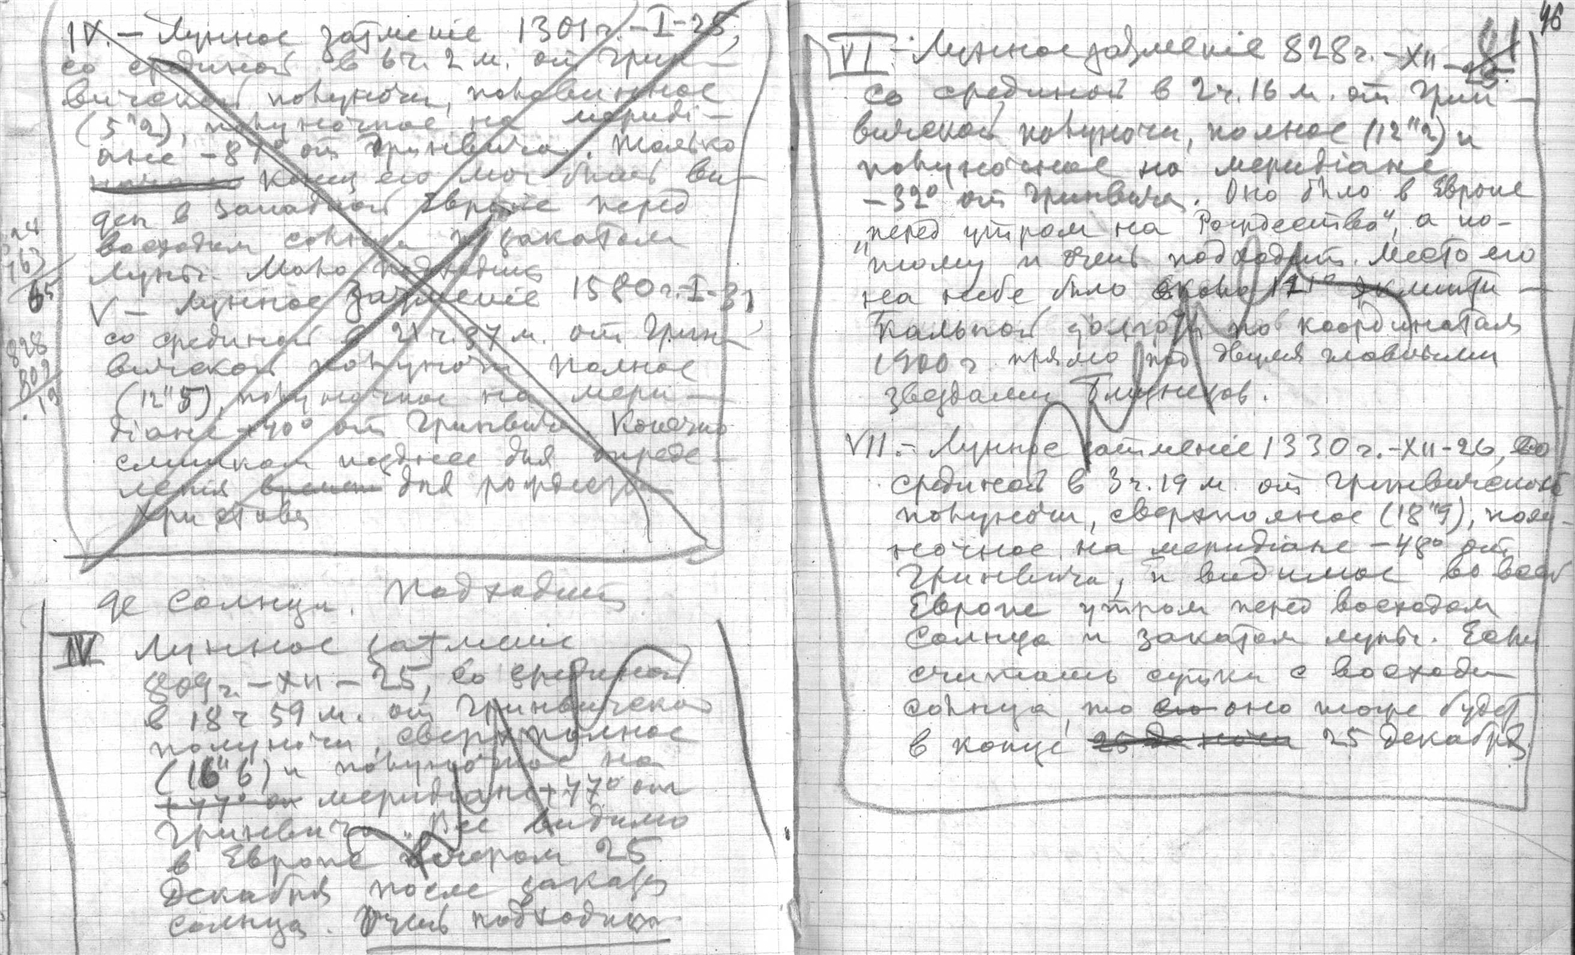 IV. – Лунное затменіе 1301 г. – I – 25,
со срединой в 6 ч. 2 м. от Грин–
вичской полуночи, половинное
(5"2), полуночное на мериді–
ане – 87° от Гринвича. Только
начало конец его мог быть ви–
ден в Западной Европе перед
восходом солнца и закатом
Луны. Мало подходит
V – Лунное затменіе 1580 г. – I – 31,
со срединой в 21 ч. 37 м. от Грин–
вичской полуночи полное
(12"5), полуночное на мери–
діане +40° от Гринвича. Конечно
слишком позднее для опреде–
ления для рождества
Христова
де Солнца. Подходит
IV Лунное затменіе
809 г. – XII – 25, со срединой
в 18 ч 59 м. от Гринвичской
полуночи, сверхполное
(16"6) и полуночное на
+77° от меридіане +77° от
Гринвича. Все видимо
в Европе вечером 25
Декабря после заката
солнца. Очень подходит
163
65
828
809
19
46
VI – Лунное затменіе 828 г. – XII –
со срединой в 2 ч. 16 м. от Грин–
вичской полуночи, полное (12"2) и
полуночное на меридіане
– 32° от Гринвича. Оно было в Европе
"перед утром на Рождество", а по–
тому и очень подходит. Место его
на небе было около эклипти–
кальной долготы по координатам
1900 г. прямо под двумя главными
звездами Близнецов.
VII. – Лунное затменіе 1330 г. – XII – 26, со
срединой в 3 ч. 19 м. от Гринвичской
полуночи, сверхполное (18"9), полу–
ночное на меридіане – 48° от
Гринвича, и видимое во всей
Европе утром перед восходом
Солнца и закатом луны. Если
считать сутки с восхода
солнца, то оно тоже будет
в конце 25 Декабря